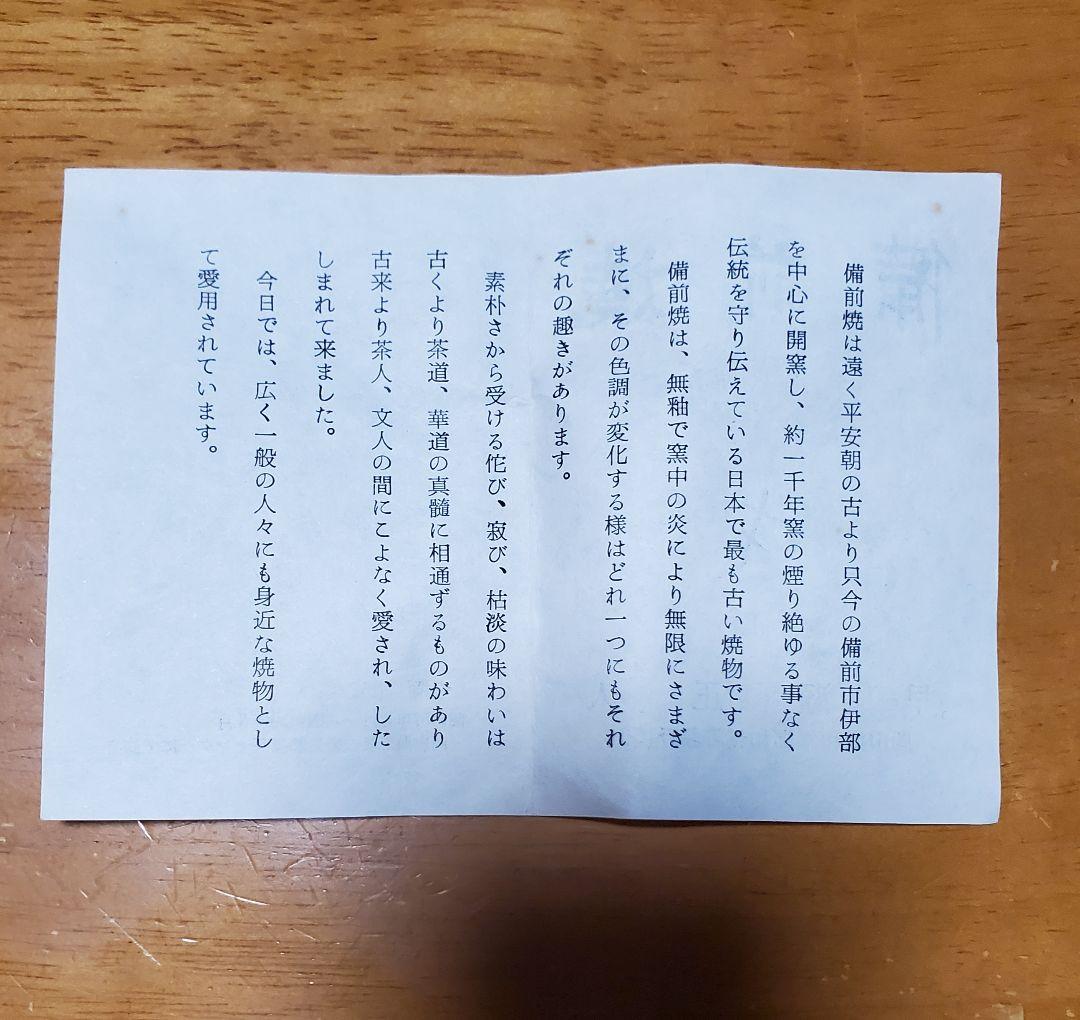 備前焼は遠く平安朝の古より只今の備前市伊部
を中心に開窯し、約一千年窯の煙り絶ゆる事なく
伝統を守り伝えている日本で最も古い焼物です。
備前焼は、無釉で窯中の炎により無限にさまざ
まに、その色調が変化する様はどれ一つにもそれ
ぞれの趣きがあります。
素朴さから受ける侘び、寂び、枯淡の味わいは
古くより茶道、華道の真髄に相通ずるものがあり
古来より茶人、文人の間にこよなく愛され、した
しまれて来ました。
今日では、広く一般の人々にも身近な焼物とし
て愛用されています。